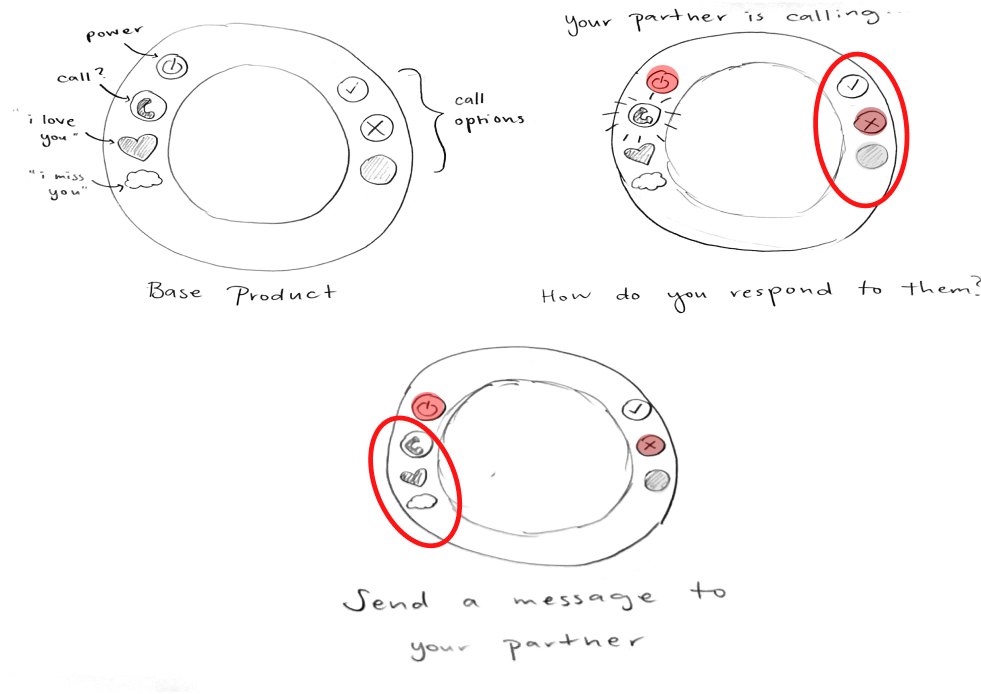 power
call?
"i love
you"
"i miss
you"
call
options
Base Product
Your partner is calling...
How do you respond to them?
Send a message to
your partner